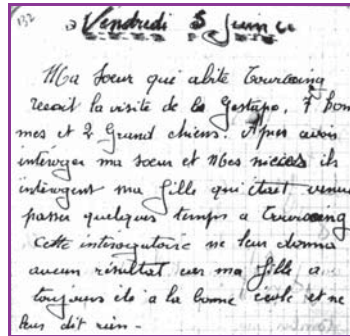 132
Vendredi 5 Juin
Ma Soeur qui abite Tourcoing
recoit la visite de la Gestapo. 7 hom
mes et 2 Grand chiens. Apres avoir
intéroger ma soeur et Mes nieces ils
intérogent ma fille qui était venue
passer quelques temps a Tourcoing
Cette interogatoire ne leur donna
aucun résultat car ma fille a
toujours été a la bonne école et ne
leur dit rien -